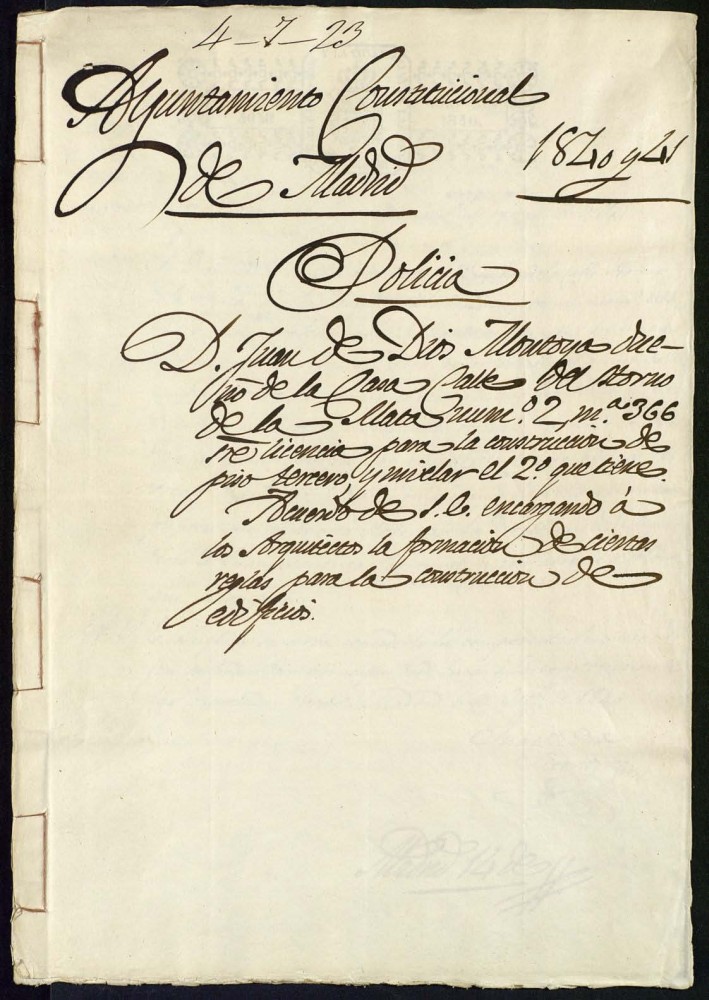 4-7-23
Ayuntamiento Constitucional
de Madrid
1840 y 41
Policia
D. Juan de Dios Montoya due-
ño de la Casa Calle del Horno
de la Mata num.º 2, m.ª 366
licencia para la construccion de
piso tercero, y nivelar el 2.º que tiene.
Acuerdo de S. E. encargando á
los Arquitectos la formacion de ciertas
reglas para la construccion de
edificios.